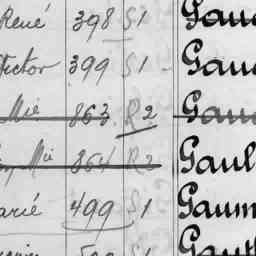 René 398 S1 Gau
Victor 399 S1 Gau
Mié 863 R2 Gau
Mié 864 R2 Gaul
arié 499 S1 Gaum
S1 Gaut